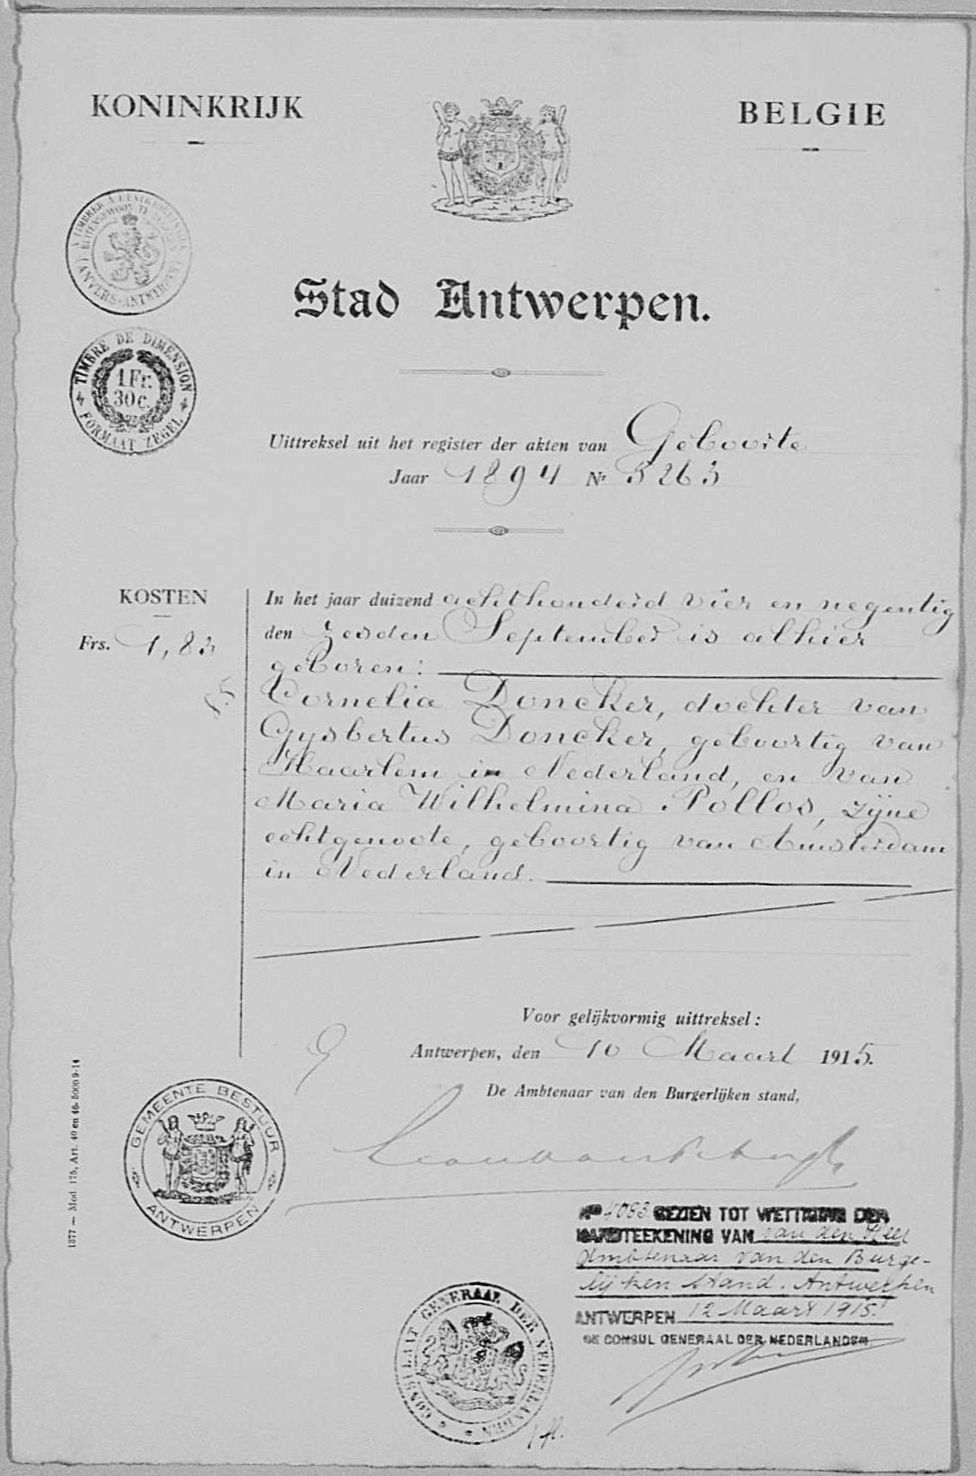 KONINKRIJK
BELGIE
A TIMBRER A L'EXTRAORDINAIRE
(ANVERS-ANTWERPEN)
Stad Antwerpen.
TIMBRE DE DIMENSION
1 Fr.
30 c.
FORMAAT ZEGEL
Uittreksel uit het register der akten van Geboorte
Jaar 1894 Nr 3263
KOSTEN
Frs. 1,83
In het jaar duizend achthonderd vier en negentig
den zesden September is alhier
geboren:
Cornelia Doncker, dochter van
Gysbertus Doncker, geboortig van
Haarlem in Nederland, en van
Maria Wilhelmina Pollos, zijne
echtgenoote, geboortig van Amsterdam
in Nederland.
Voor gelijkvormig uittreksel:
Antwerpen, den 10 Maart 1915.
De Ambtenaar van den Burgerlijken stand,
1377 — Mod. 175, Art. 40 en 46- 50000 9-14
GEMEENTE BESTUUR
ANTWERPEN
No 4083 GEZIEN TOT WETTIGING DER
HANDTEEKENING VAN van den Heer
Ambtenaar van den Burge-
lijken stand. Antwerpen
ANTWERPEN 12 Maart 1915.
DE CONSUL GENERAAL DER NEDERLANDEN.
CONSULAAT GENERAAL DER NEDERLANDEN
1 fl.